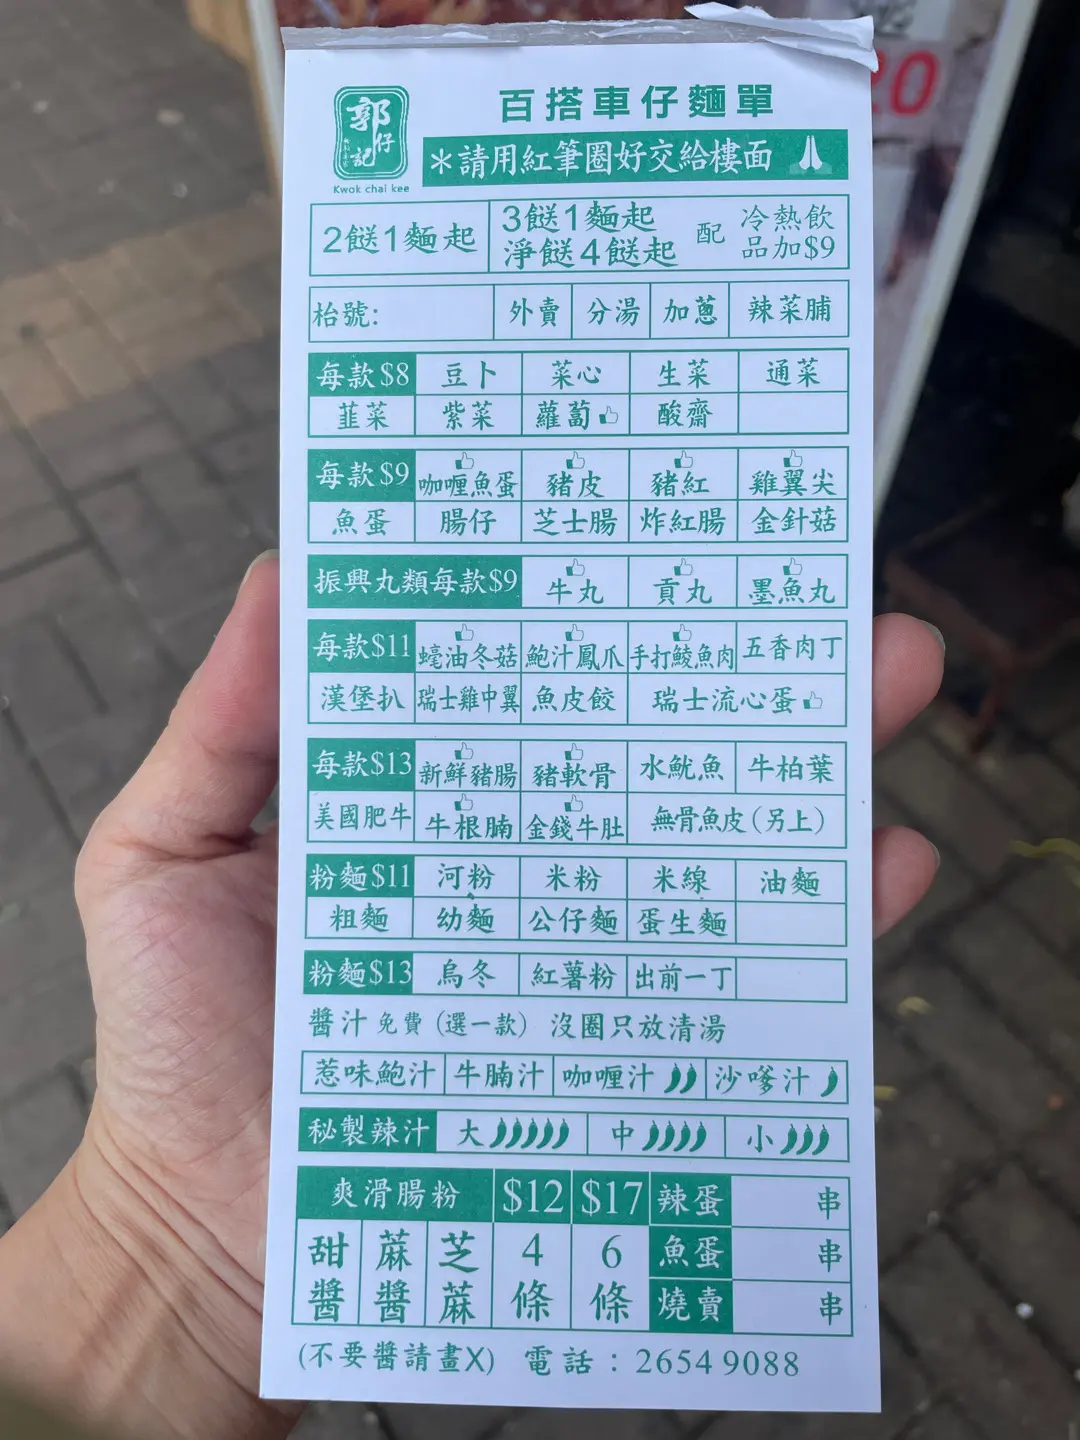 20
郭仔記
Kwok chai kee
百搭車仔麵單
＊請用紅筆圈好交給樓面
2餸1麵起 3餸1麵起 淨餸4餸起 配 冷熱飲品加$9
枱號: 外賣 分湯 加蔥 辣菜脯
每款$8 豆卜 菜心 生菜 通菜
韮菜 紫菜 蘿蔔 酸齋
每款$9 咖喱魚蛋 豬皮 豬紅 雞翼尖
魚蛋 腸仔 芝士腸 炸紅腸 金針菇
振興丸類每款$9 牛丸 貢丸 墨魚丸
每款$11 蠔油冬菇 鮑汁鳳爪 手打鯪魚肉 五香肉丁
漢堡扒 瑞士雞中翼 魚皮餃 瑞士流心蛋
每款$13 新鮮豬腸 豬軟骨 水魷魚 牛柏葉
美國肥牛 牛根腩 金錢牛肚 無骨魚皮(另上)
粉麵$11 河粉 米粉 米線 油麵
粗麵 幼麵 公仔麵 蛋生麵
粉麵$13 烏冬 紅薯粉 出前一丁
醬汁免費(選一款) 沒圈只放清湯
惹味鮑汁 牛腩汁 咖喱汁 沙嗲汁
秘製辣汁 大 中 小
爽滑腸粉 $12 $17 辣蛋 串
甜醬 蔴醬 芝蔴 4條 6條 魚蛋 串
燒賣 串
(不要醬請畫X) 電話：2654 9088